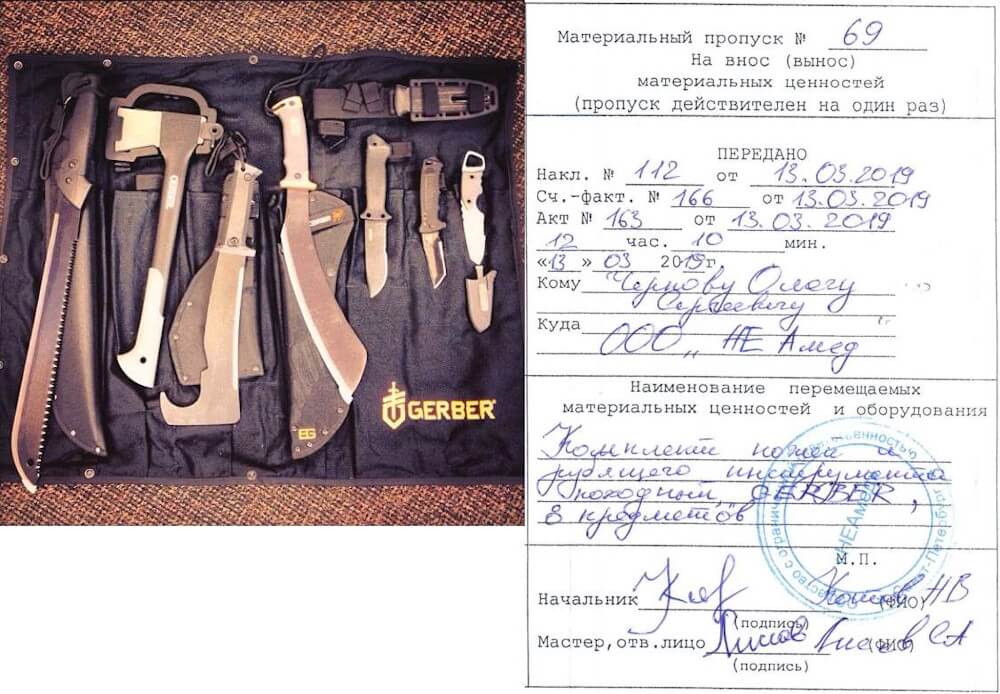 GERBER
EG
Материальный пропуск № 69
На внос (вынос)
материальных ценностей
(пропуск действителен на один раз)
ПЕРЕДАНО
Накл. № 112 от 13.03.2019
Сч.-факт. № 166 от 13.03.2019
Акт № 163 от 13.03.2019
12 час. 10 мин.
«13» 03 2019г
Кому Чернову Олегу
Сергеевичу
Куда
ООО „НЕАмед
Наименование перемещаемых
материальных ценностей и оборудования
Комплект ножей и
рубящего инструмента
походный, „GERBER",
8 предметов
М.П.
Начальник НВ
(ФИО)
(подпись)
Мастер,отв.лицо СА
(ФИО)
(подпись)